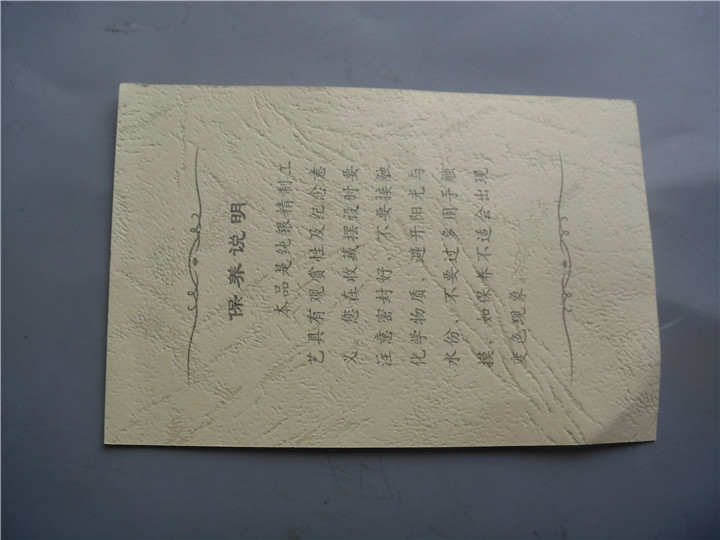 保养说明
本品是纯银精制工
艺具有观赏性及纪念意
义，您在收藏摆设时要
注意密封好、不要接触
化学物质、避开阳光与
水份、不要过多用手触
摸、如保养不适会出现
变色现象。